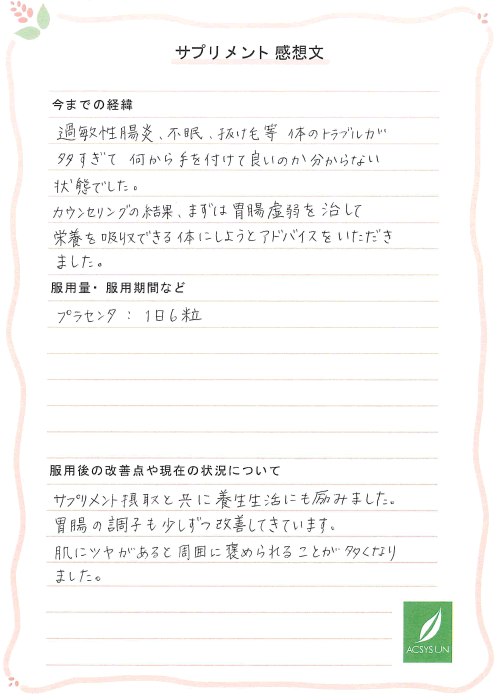 サプリメント 感想文
今までの経緯
過敏性腸炎、不眠、抜け毛等 体のトラブルが
多すぎて 何から手を付けて良いのか分からない
状態でした。
カウンセリングの結果、まずは胃腸虚弱を治して
栄養を吸収できる体にしようとアドバイスをいただき
ました。
服用量・服用期間など
プラセンタ : 1日6粒
服用後の改善点や現在の状況について
サプリメント摂取と共に養生生活にも励みました。
胃腸の調子も少しずつ改善してきています。
肌にツヤがあると周囲に褒められることが多くなり
ました。
ACSYSUN